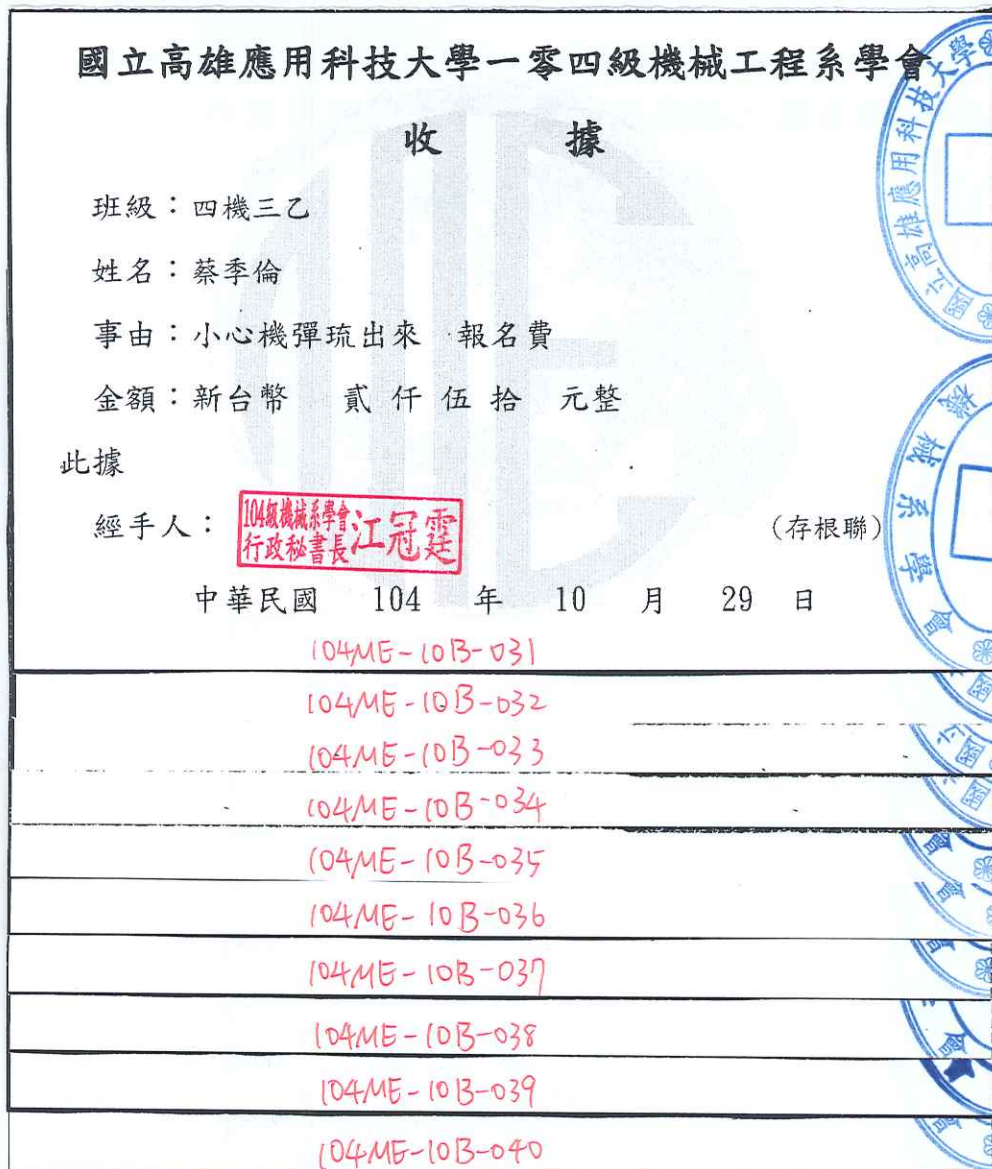 國立高雄應用科技大學一零四級機械工程系學會
收 據
班級：四機三乙
姓名：蔡季倫
事由：小心機彈琉出來 報名費
金額：新台幣 貳仟伍拾 元整
此據
經手人：
104級機械系學會
行政秘書長 江冠霆
(存根聯)
中華民國 104 年 10 月 29 日
104ME-10B-031
104ME-10B-032
104ME-10B-033
104ME-10B-034
104ME-10B-035
104ME-10B-036
104ME-10B-037
104ME-10B-038
104ME-10B-039
104ME-10B-040
國立高雄應用科技大學
機械系學會